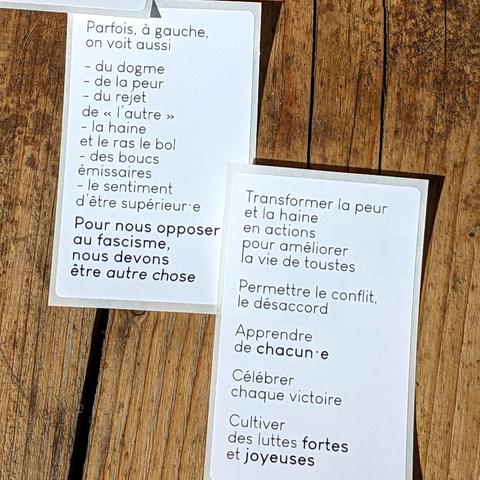 Parfois, à gauche,
on voit aussi
- du dogme
- de la peur
- du rejet
de « l'autre »
- la haine
et le ras le bol
- des boucs
émissaires
- le sentiment
d'être supérieur·e
Pour nous opposer
au fascisme,
nous devons
être autre chose
Transformer la peur
et la haine
en actions
pour améliorer
la vie de toustes
Permettre le conflit,
le désaccord
Apprendre
de chacun·e
Célébrer
chaque victoire
Cultiver
des luttes fortes
et joyeuses